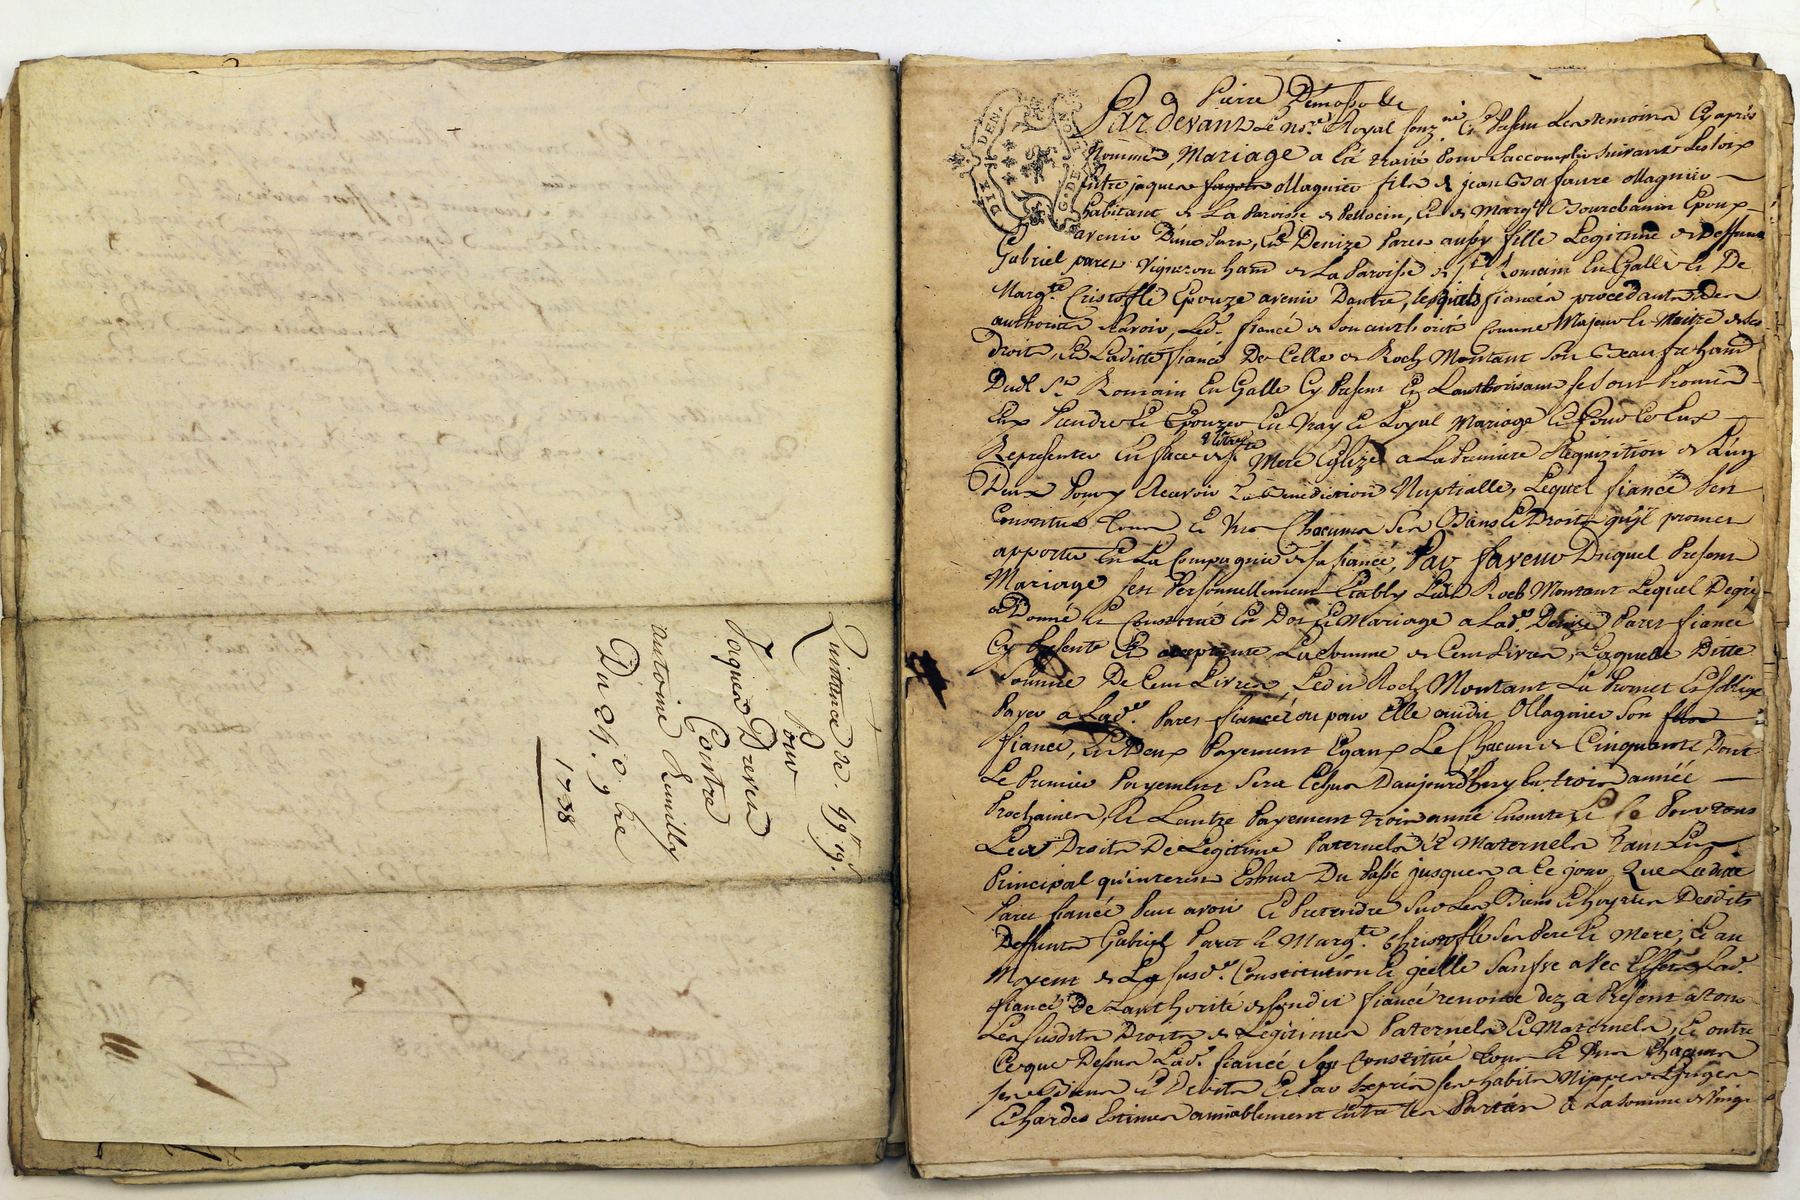 Quittance de 99ᵗᵗ 19ˢ
Pour
Jaques Dreven
Contre
antoine Remilly
Du 24.e 9bre
1738
DIX DEN.
G. DE
Pierre
Par devant Le No.re Royal souz.né Et Presents Les temoins Cy aprés
Nommés, Mariage a Eté traité Pour Saccomplir Suivant Les Loix
Entre jaques ollagnier fils de jean ollagnier
habitant de La Paroisse de Pellocin, Et de Marg.te Epoux
avenir D'une Part, Et Denize Paret aussy fille Legitime de Deffunt
Gabriel paret Vigneron hant de La Paroisse de St Romain En Galle Et De
Marg.te Cristofle Epouze avenir Dautre, lesquels fiancés procedants de
authorités Savoir, Led. fiancé de Son authorité Comme Majeur Et Maitre de Ses
Droits, Et Laditte fiancée De Celle de Roch Montant Son Beaufre hant
Dudt St Romain En Galle Cy Present Et Lauthorisant se Sont Promis
Eux Prendre Et Epouzer En Vray Et Loyal Mariage Et Pour Ce Eux
Representer En face de nre Ste Mere Eglize a La Premiere Requizition de L'un
Deux Pour y Recevoir La Benediction Nuptialle, Lequel fiancé Sest
Constitué Tous Et Uns Chacuns Ses Biens Et Droits qu'jl promet
apporter En La Compagnie de sa fiancée, Par faveur Duquel Present
Mariage sest Personnellement Etably Ledt Roch Montant Lequel Degré
a Donné Et Constitué En Dot Et Mariage a Lad. Denize Paret fiancée
Cy Presente Et acceptante La Somme de Cent Livres, Laquelle Ditte
Somme De Cent Livres, Ledit Roch Montant La Promet Et Soblige
Payer a Lad. Paret fiancée ou pour Elle audit Ollagnier Son
fiancé, En Deux Payement Egaux De Chacun de Cinquante, Dont
Le Premier Payement Sera Echu Daujourd'huy En trois année
Prochaines, Et Lautre Payement trois année Ensuite, Et Ce Pour tous
Les Droits De Legitime Paternels Et Maternels tant En
Principal qu'interets Echus Du Passé jusques a Ce jour Que Laditte
Paret fiancée Peut avoir Et Pretendre Sur Les Biens Et hoyries Desdits
Deffunts Gabriel Paret Et Marg.te Christofle Ses Pere Et Mere, Et au
Moyent de La Susd.e Constitution Et jcelle Sortissant Effet Lad.
fiancée De Lauthorité de sondit fiancé renonce dez a Present a tous
Les susdits Droits de Legitimes Paternels Et Maternels, Et outre
Ce que Dessus Lad. fiancée Sest Constitué tous Et Uns Chacuns
ses Biens Et Droits Et Par Exprés ses habits Nippes Linges
Et hardes Estimés amiablement Entre Les Parties a La Somme de Vingt